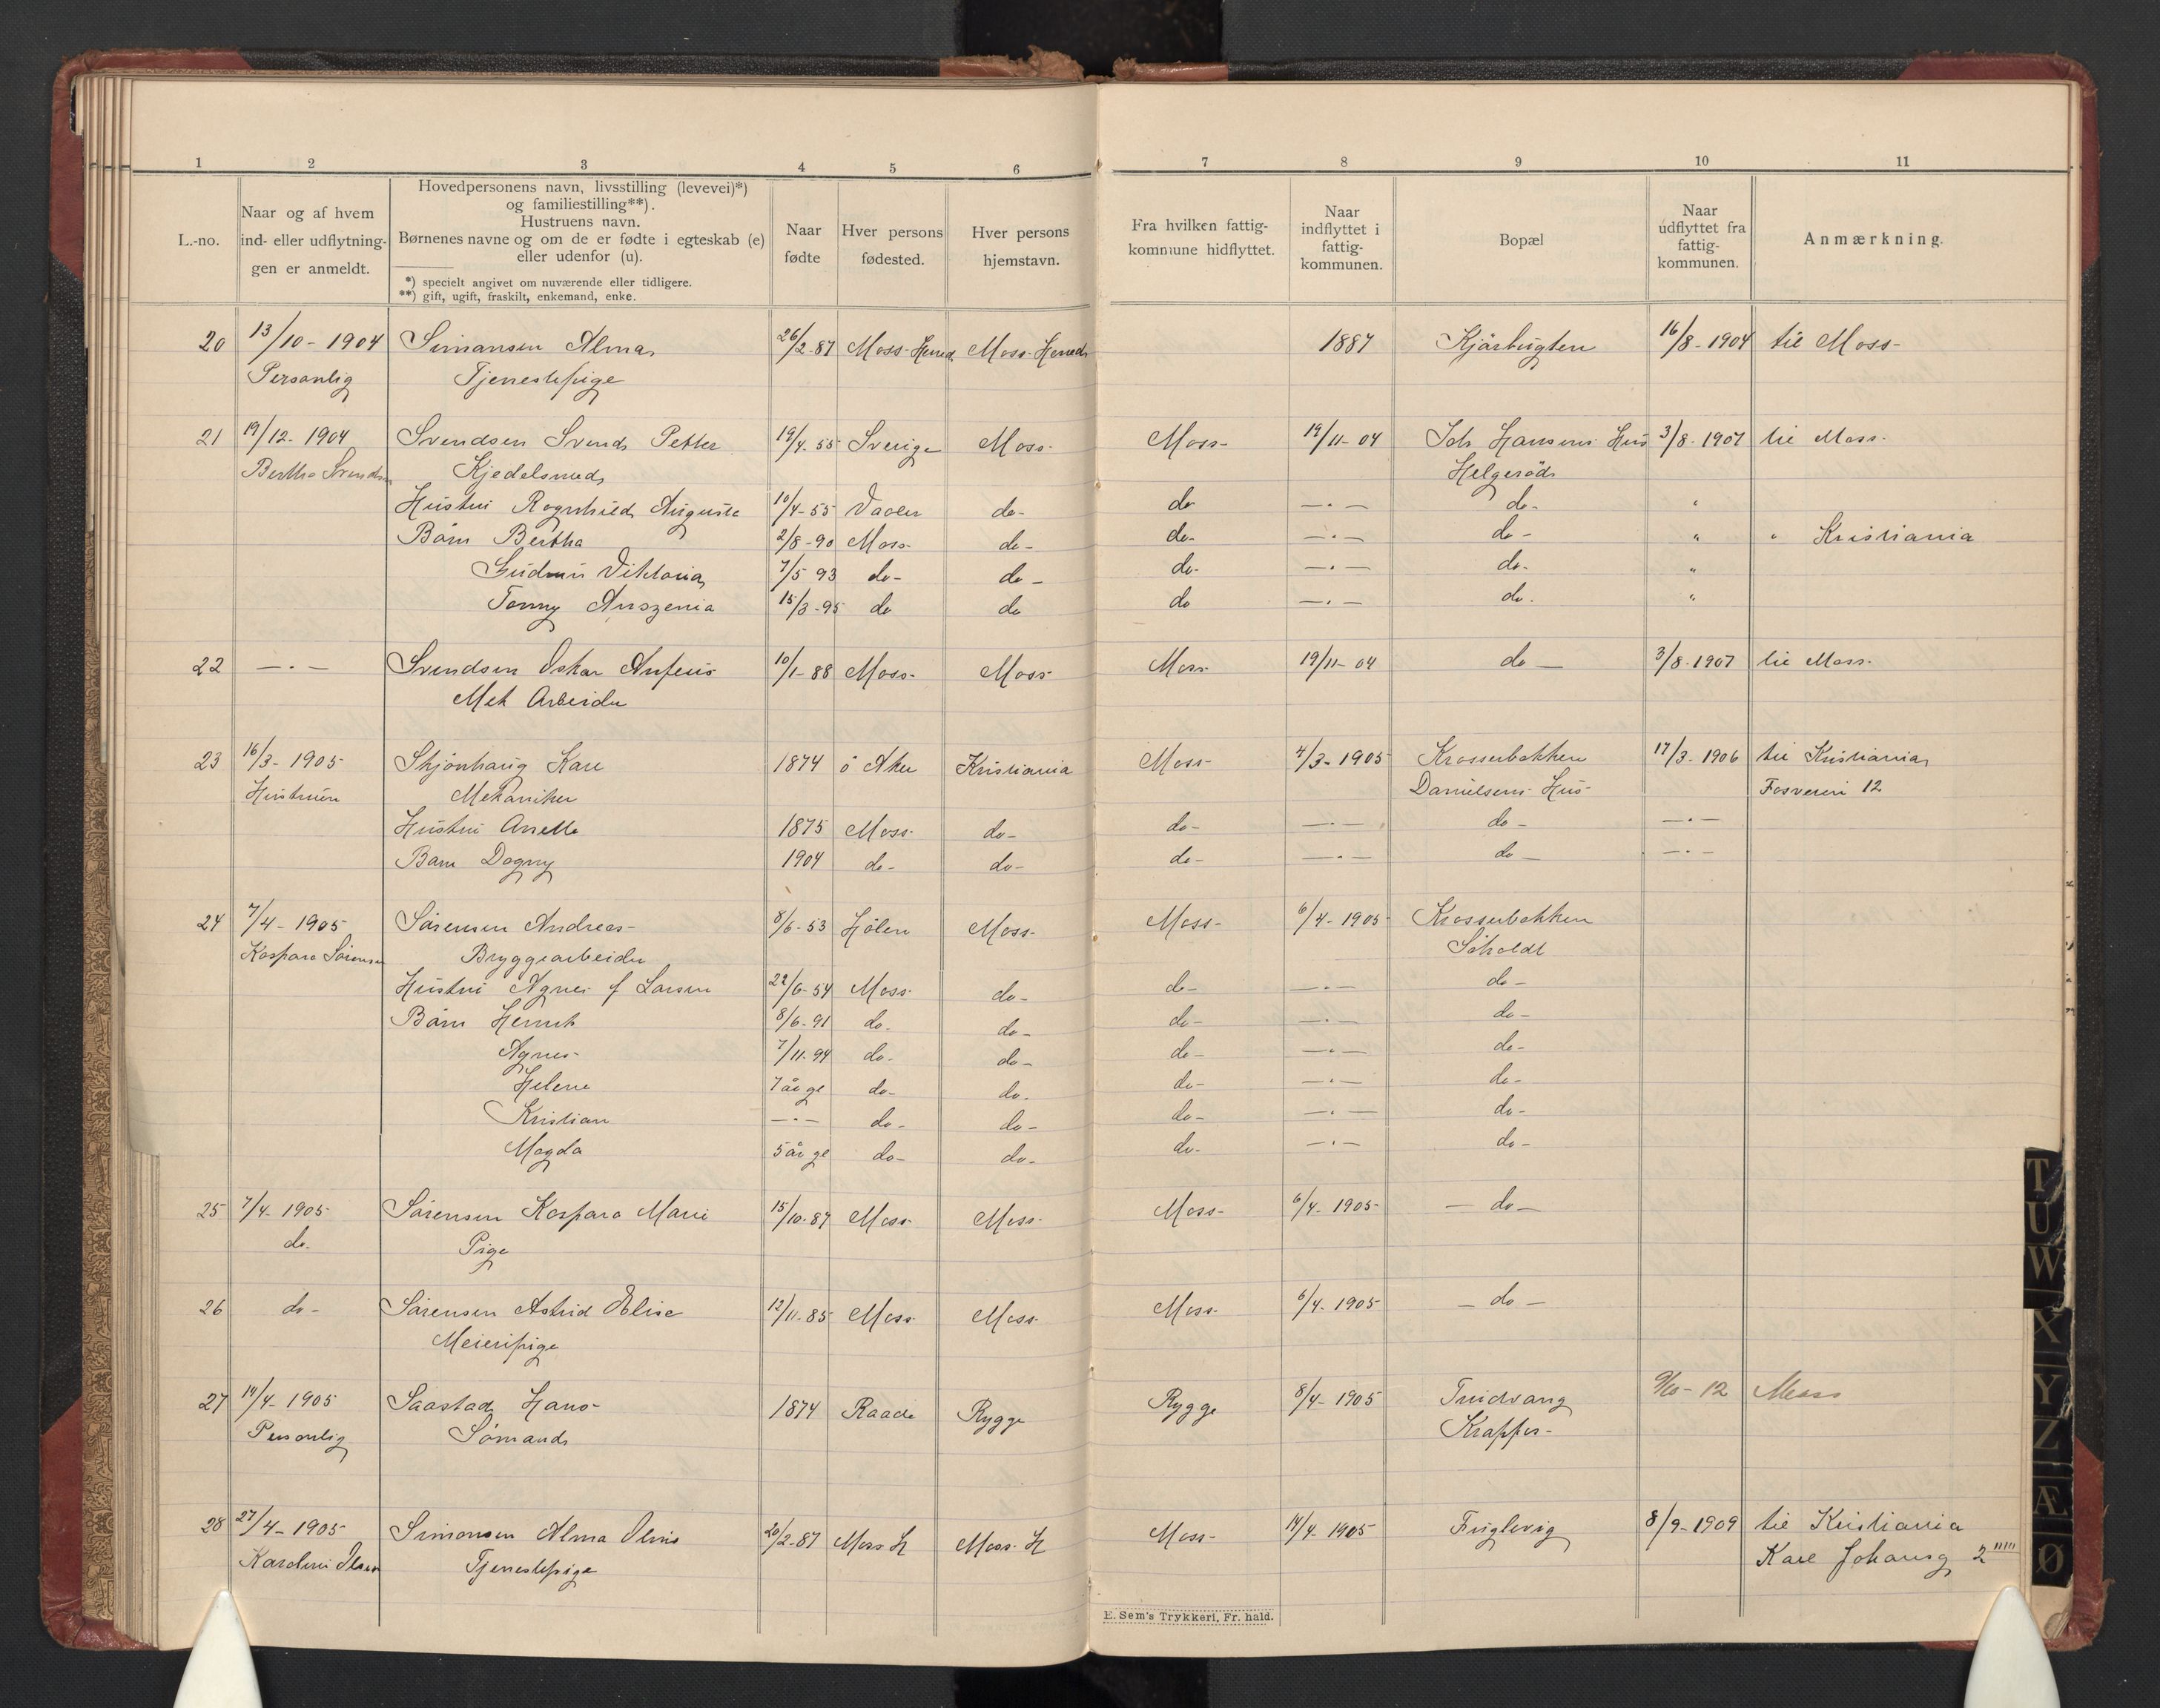 1 2 3 4 5 6 7 8 9 10 11
L.-no.
Naar og af hvem
ind- eller udflytnin-
gen er anmeldt.
Hovedpersonens navn, livsstilling (levevei)*)
og familiestilling**).
Hustruens navn.
Børnenes navne og om de er fødte i egteskab (e)
eller udenfor (u).
*) specielt angivet om nuværende eller tidligere.
**) gift, ugift, fraskilt, enkemand, enke.
Naar
fødte
Hver persons
fødested.
Hver persons
hjemstavn.
Fra hvilken fattig-
kommune hidflyttet.
Naar
indflyttet i
fattig-
kommunen.
Bopæl
Naar
udflyttet fra
fattig-
kommunen.
Anmærkning.
20 13/10-1904 Simansen Alma 26/2-87 Moss Herred Moss-Herred 1887 Kjärbugten 16/8-1904 til Moss-
Personlig Tjenestepige
21 19/12-1904 Svendsen Svend Petter 19/4-55 Sverige Moss- Moss- 19/11-04 Joh Hansens Hus 3/8-1907 til Moss-
Bertha Svendsen Kjedelsmed Helgeröd
Hustru Ragnhild Auguste 10/4-55 Vaaler do- do —·— do- "
Barn Bertha 2/8-90 Moss- do- do- —·— do- " " Kristiania
Gudrun Viktoria 7/5 93 do- do- do- —·— do- "
Tonny 15/3-95 do do do —·— do- "
22 —·— Svendsen Oskar 10/1-88 Moss- Moss- Moss 19/11-04 do — 3/8-1907 til Moss-
Mek Arbeider
23 16/3-1905 Skjönhaug Karl 1874 ö Aker Kristiania Moss- 4/3-1905 Krosserbakken 17/3-1906 til Kristiania
Hustruen Mekaniker Danielsens Hus- Fosveien 12
Hustru Anette 1875 Moss- do- do- —·— do- —·—
Barn Dagny 1904 do- do- do- —·— do- —·—
24 7/4-1905 Sörensen Andreas- 8/6-53 Hölen Moss- Moss- 6/4-1905 Krosserbakken
Kaspara Sörensen Bryggearbeider Söholdt
Hustru Agnes f Larsen 22/6-54 Moss- do- do- —·— do-
Barn Henrik 8/6-91 do. do- do- —·— do-
Agnes- 7/11-94 do- do- do- —·— do-
Helene 7 år gl do- do. do- —·— do-
Kristian —·— do- do- do- —·— do-
Magda 5 år gl do- do- do- —·— do-
25 7/4-1905 Sörensen Kaspara Marie 15/10-87 Moss- Moss- Moss- 6/4-1905 — do —
do. Pige
26 do- Sörensen Astrid Elise 12/11-85 Moss Moss Moss- 6/4-1905 — do —
Meieripige
27 19/4-1905 Saastad Hans- 1874 Raade Rygge Rygge 8/4-1905 9/10-12 Moss
Personlig Sömand Krapfos-
28 27/4-1905 Simonsen Alma 20/2-87 Moss H Moss-H Moss- 19/4-1905 Fuglevig 8/9-1909 til Kristiania
Karoline Olsen Tjenestepige Karl Johansg 2
E. Sem's Trykkeri, Fr. hald.
T
U
W
X
Y
Z
Æ
Ø